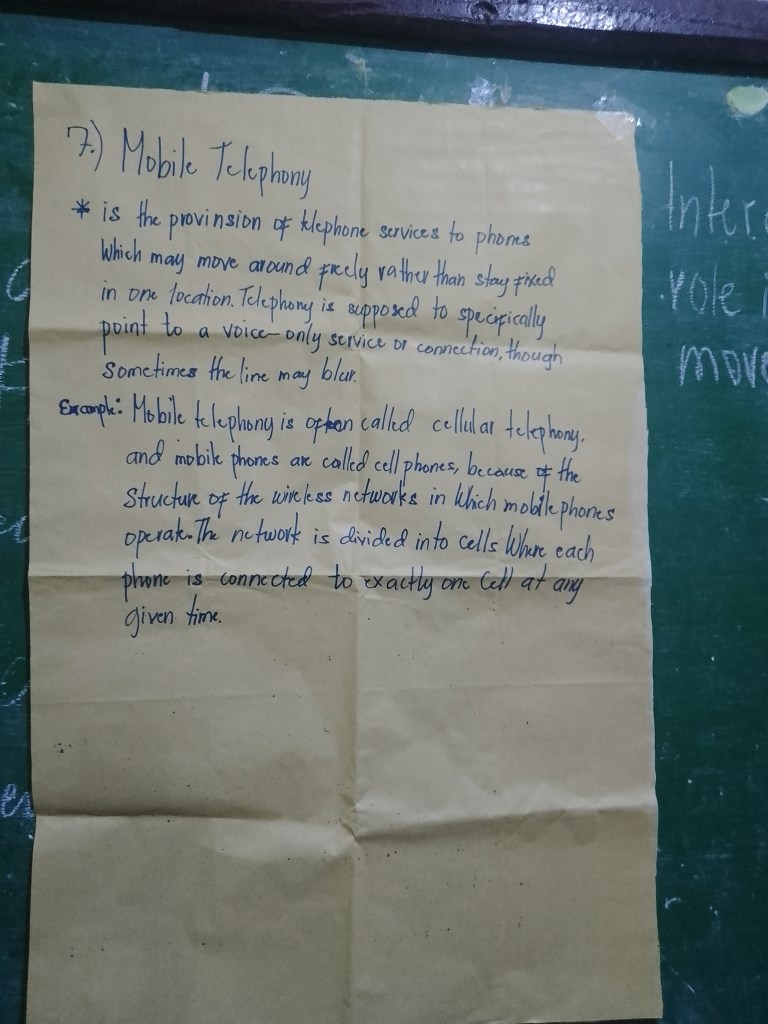 7.) Mobile Telephony
* is the provinsion of telephone services to phones
Which may move around freely rather than stay fixed
in one location. Telephony is supposed to specifically
point to a voice-only service or connection, though
sometimes the line may blur.
Example: Mobile telephony is often called cellular telephony.
and mobile phones are called cell phones, because of the
Structure of the wireless networks in Which mobile phones
operate. The network is divided into cells Where each
phone is connected to exactly one Cell at any
given time.
role
move